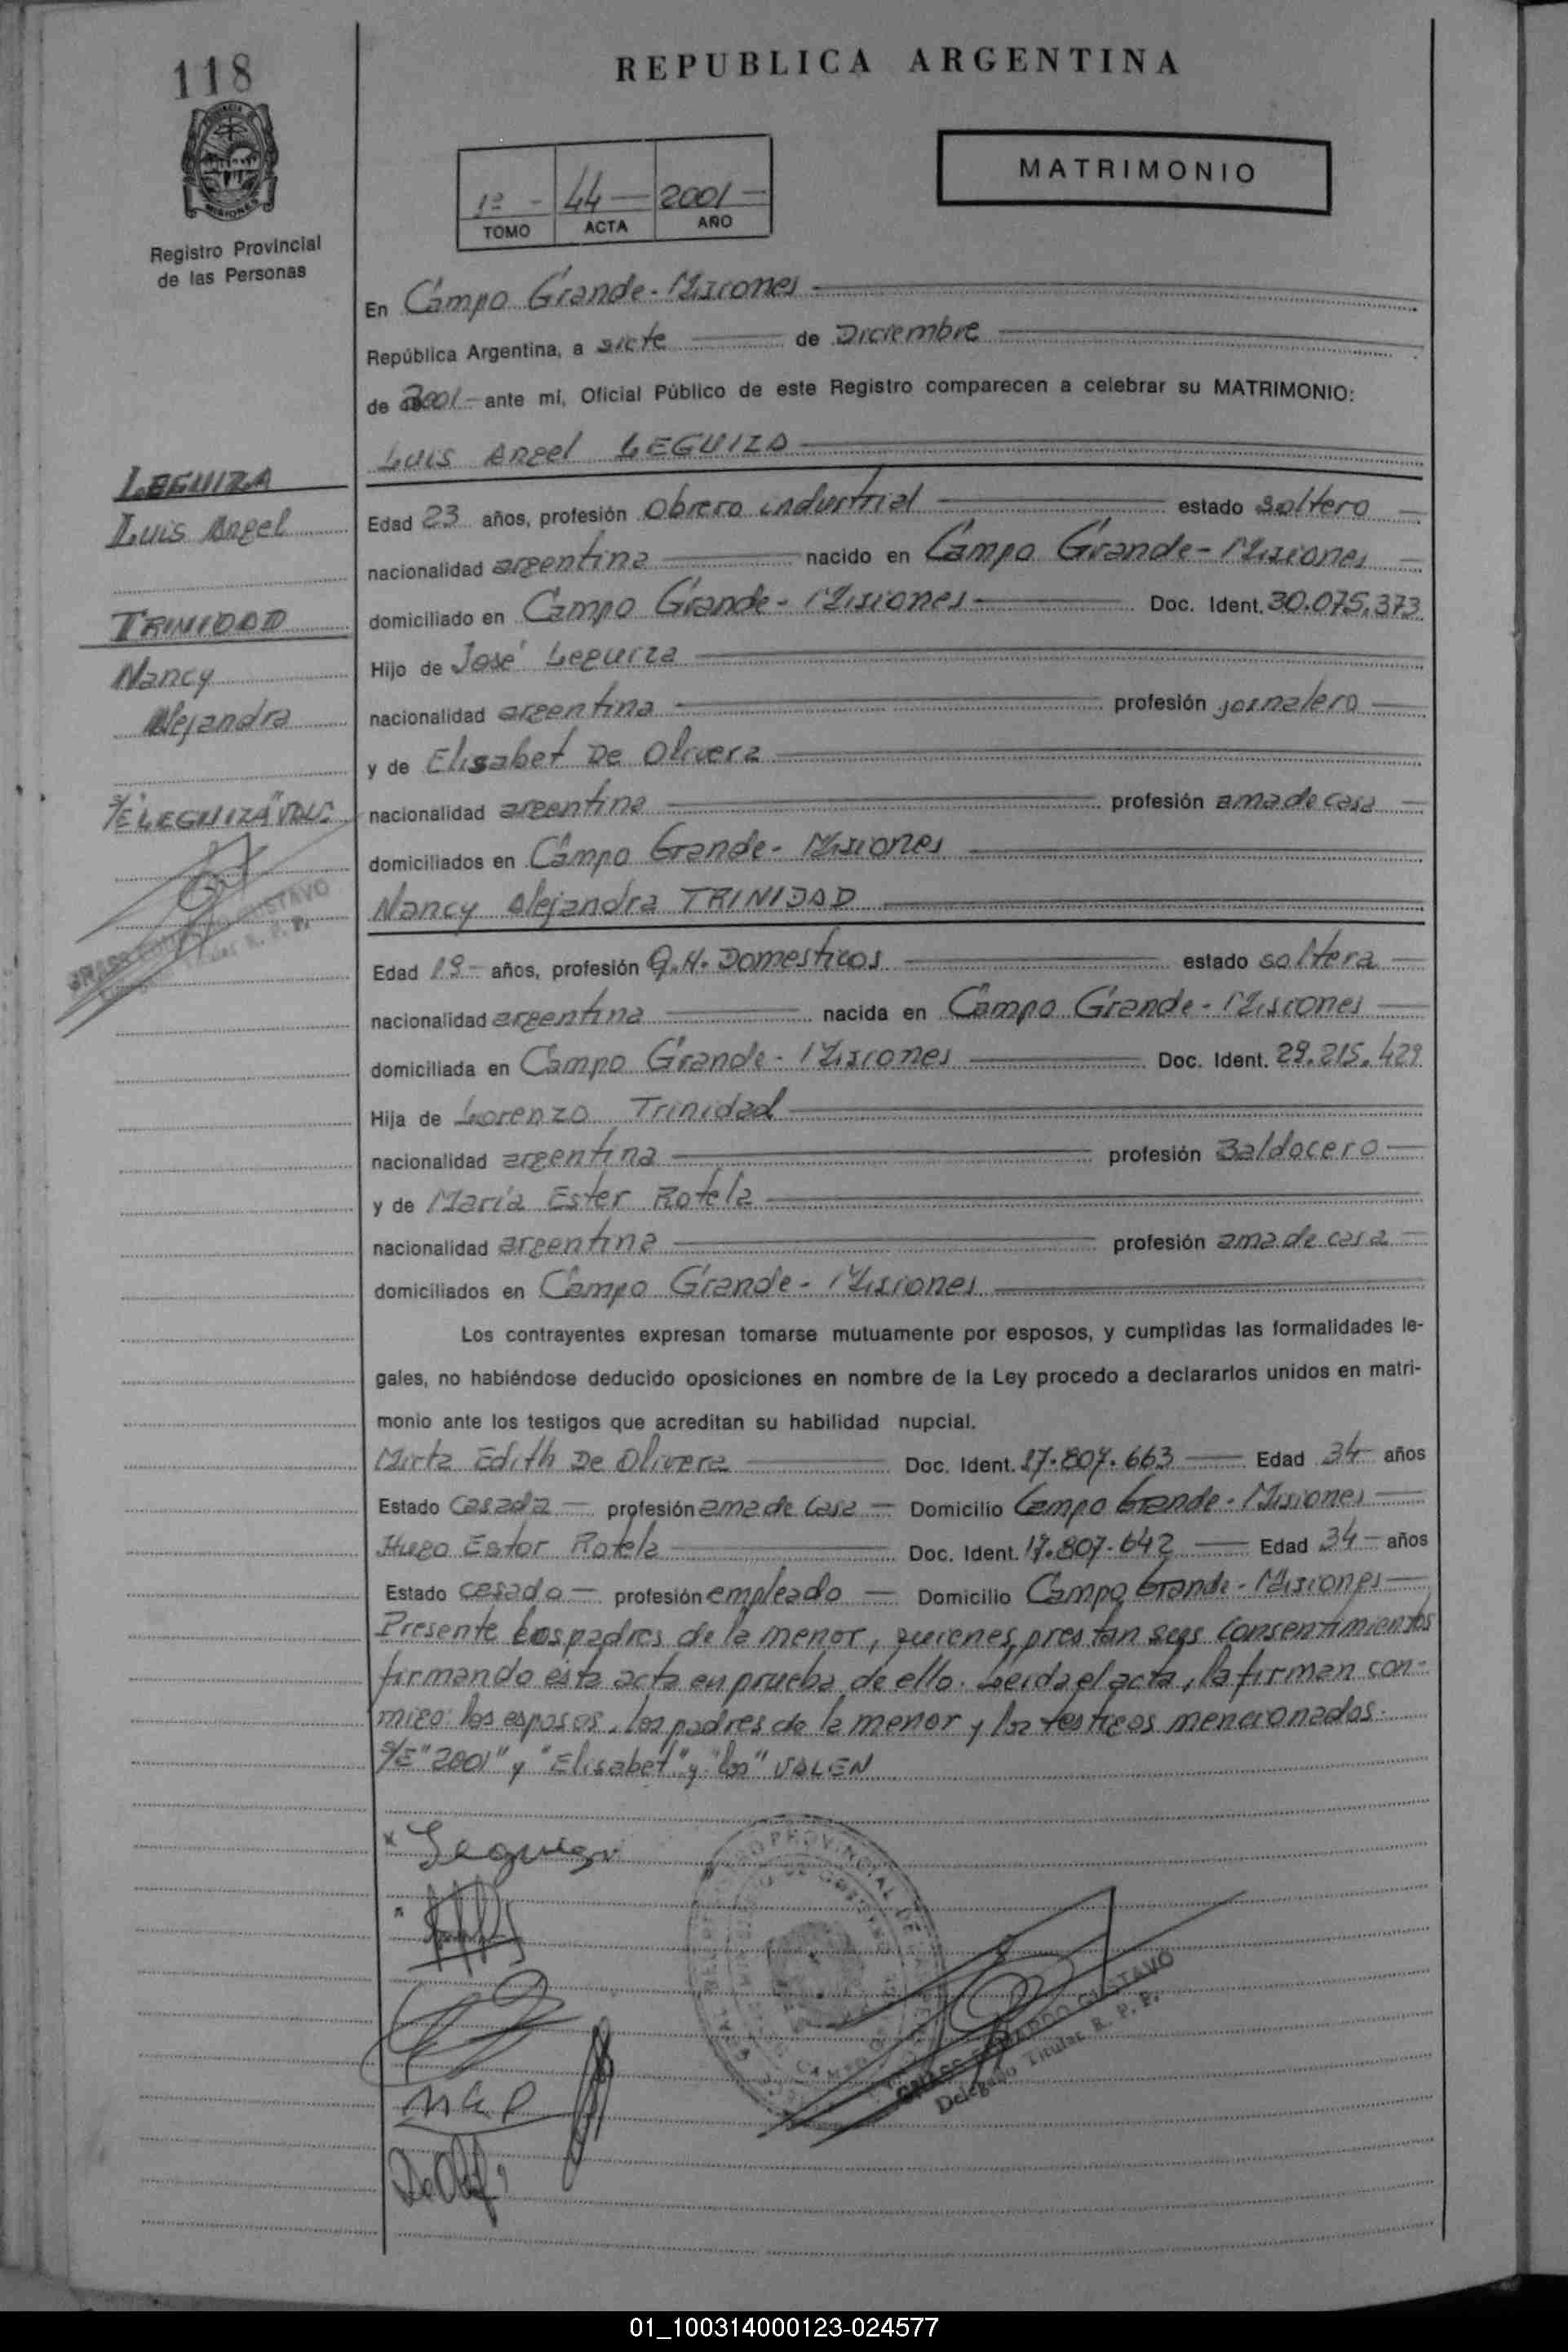 118
REPUBLICA ARGENTINA
MATRIMONIO
1º - 44 - 2001 -
TOMO ACTA AÑO
MISIONES
Registro Provincial
de las Personas
En Campo Grande - Misiones
República Argentina, a siete de Diciembre
de 2001 - ante mi, Oficial Público de este Registro comparecen a celebrar su MATRIMONIO:
Luis Angel LEGUIZA
LEGUIZA
Luis Angel
TRINIDAD
Nancy
Alejandra
S/E "LEGUIZA" VALE
Edad 23 años, profesión Obrero industrial estado soltero
nacionalidad argentina nacido en Campo Grande - Misiones
domiciliado en Campo Grande - Misiones Doc. Ident. 30.075.373
Hijo de José Leguiza
nacionalidad argentina profesión jornalero
y de Elisabet De Olivera
nacionalidad argentina profesión ama de casa
domiciliados en Campo Grande - Misiones
Nancy Alejandra TRINIDAD
Edad 19 - años, profesión Q.H. Domesticos estado soltera
nacionalidad argentina nacida en Campo Grande - Misiones
domiciliada en Campo Grande - Misiones Doc. Ident. 29.215.429
Hija de Lorenzo Trinidad
nacionalidad argentina profesión Baldocero
y de María Ester Rotela
nacionalidad argentina profesión ama de casa
domiciliados en Campo Grande - Misiones
Los contrayentes expresan tomarse mutuamente por esposos, y cumplidas las formalidades le-
gales, no habiéndose deducido oposiciones en nombre de la Ley procedo a declararlos unidos en matri-
monio ante los testigos que acreditan su habilidad nupcial.
Mirta Edith De Olivera Doc. Ident. 17.807.663 Edad 34 años
Estado Casada profesión ama de casa Domicilio Campo Grande - Misiones
Hugo Estor Rotela Doc. Ident. 17.807.642 Edad 34 años
Estado casado profesión empleado Domicilio Campo Grande - Misiones
Presente los padres de la menor, quienes prestan sus consentimientos
firmando ésta acta en prueba de ello. Leida el acta, la firman con-
migo: los esposos, los padres de la menor y los testigos mencionados.
S/E "2001" y "Elisabet" y "los" VALEN
Leguiza
GUSTAVO
Delegado Titular R. P. P.
01_100314000123-024577